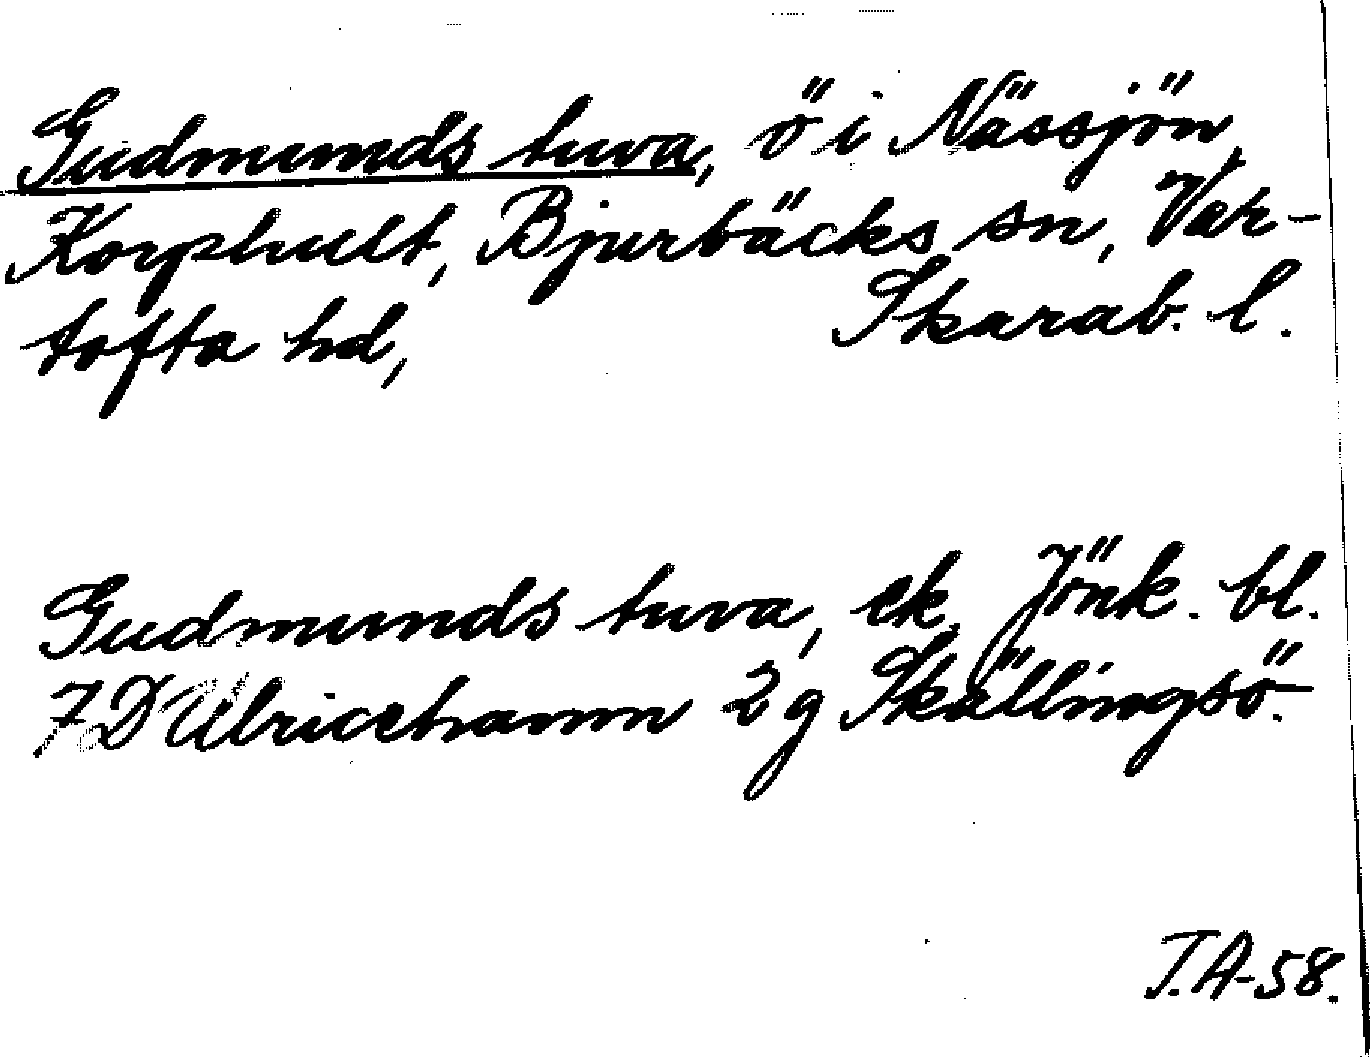 Gudmunds tuva, ö i Nässjön,
Korphult, Bjurbäcks sn, Var-
tofta hd, Skarab. l.
Gudmunds tuva, ek. Jönk. bl.
7 D Ulricehamn 2 g Skällingsö.
T.A-58.